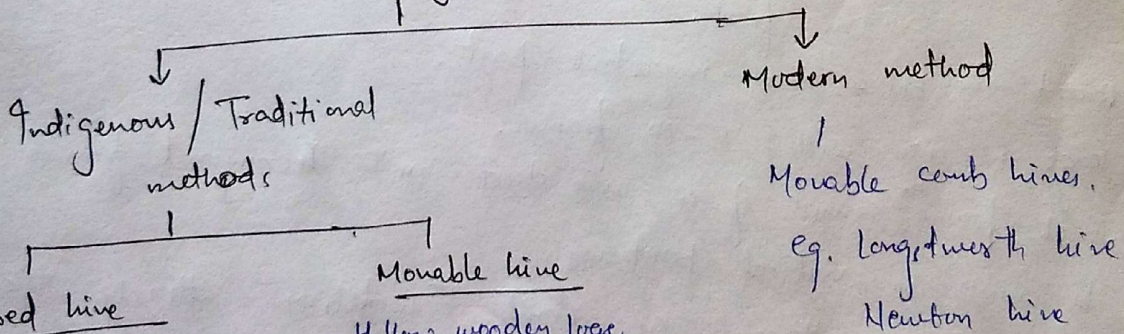 Indigenous / Traditional
methods
Modern method
Movable comb hives.
eg. Longstwerth hive
Newton hive
Movable hive
hive
wooden